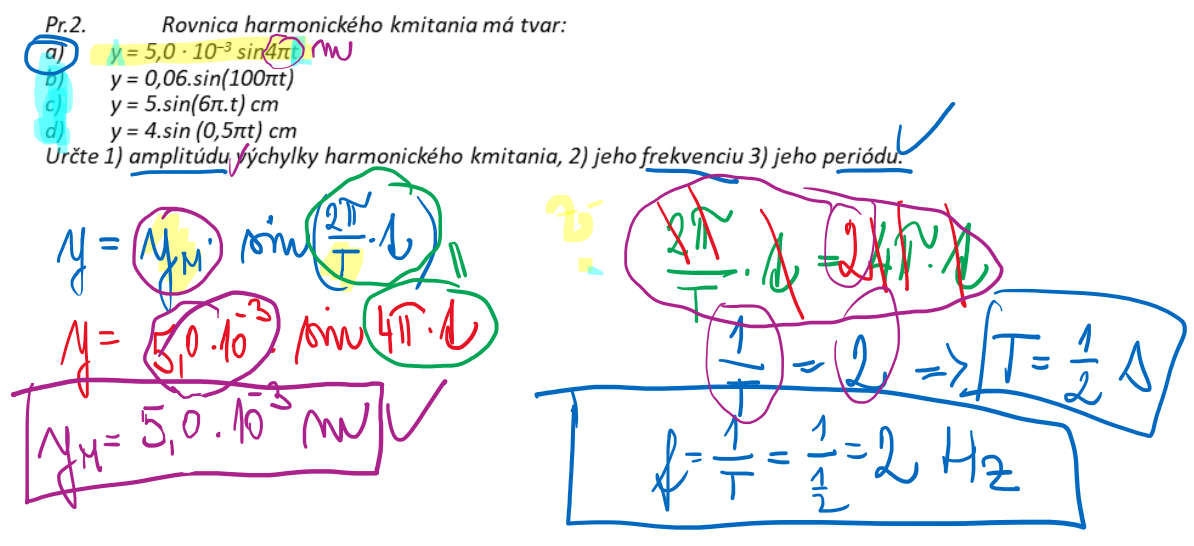 Pr.2. Rovnica harmonického kmitania má tvar:
a) y = 5,0 · 10⁻³ sin4πt m
b) y = 0,06.sin(100πt)
c) y = 5.sin(6π.t) cm
d) y = 4.sin (0,5πt) cm
Určte 1) amplitúdu výchylky harmonického kmitania, 2) jeho frekvenciu 3) jeho periódu.
y = yM · sin (2π/T · t)
y = 5,0 · 10⁻³ · sin 4π · t
yM = 5,0 · 10⁻³ m
2π/T · t = 2 4π · t
1/T = 2 => T = 1/2 s
f = 1/T = 1/(1/2) = 2 Hz